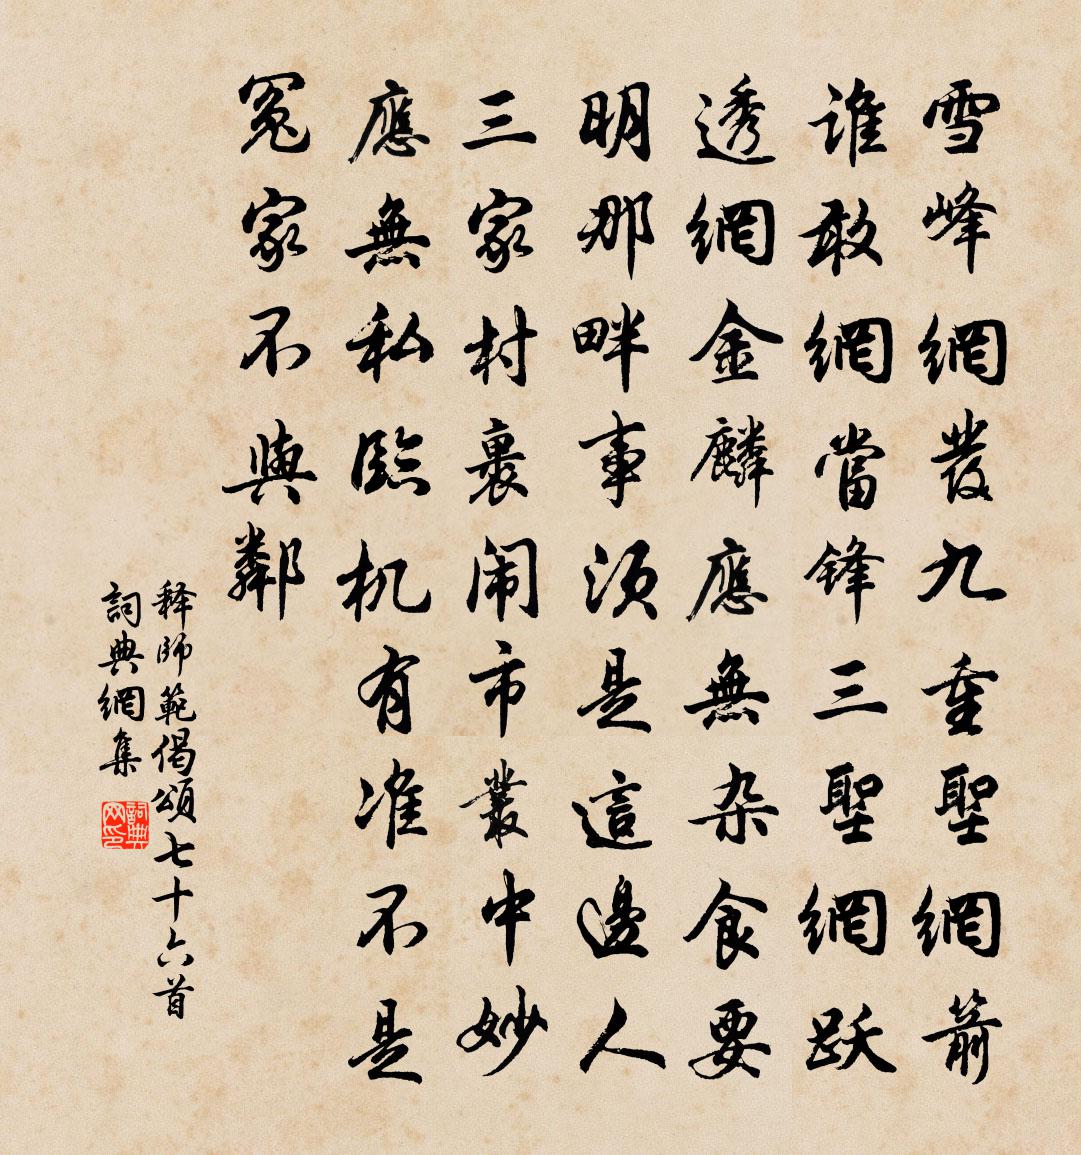 雪峰網發九重聖網箭
誰敢網當鋒三聖網跃
透網金麟應無杂食要
明那畔事須是這邊人
三家村裏闹市叢中妙
應無私臨机有准不是
冤家不與鄰
释師範偈頌七十六首
詞典網集
詞典网印